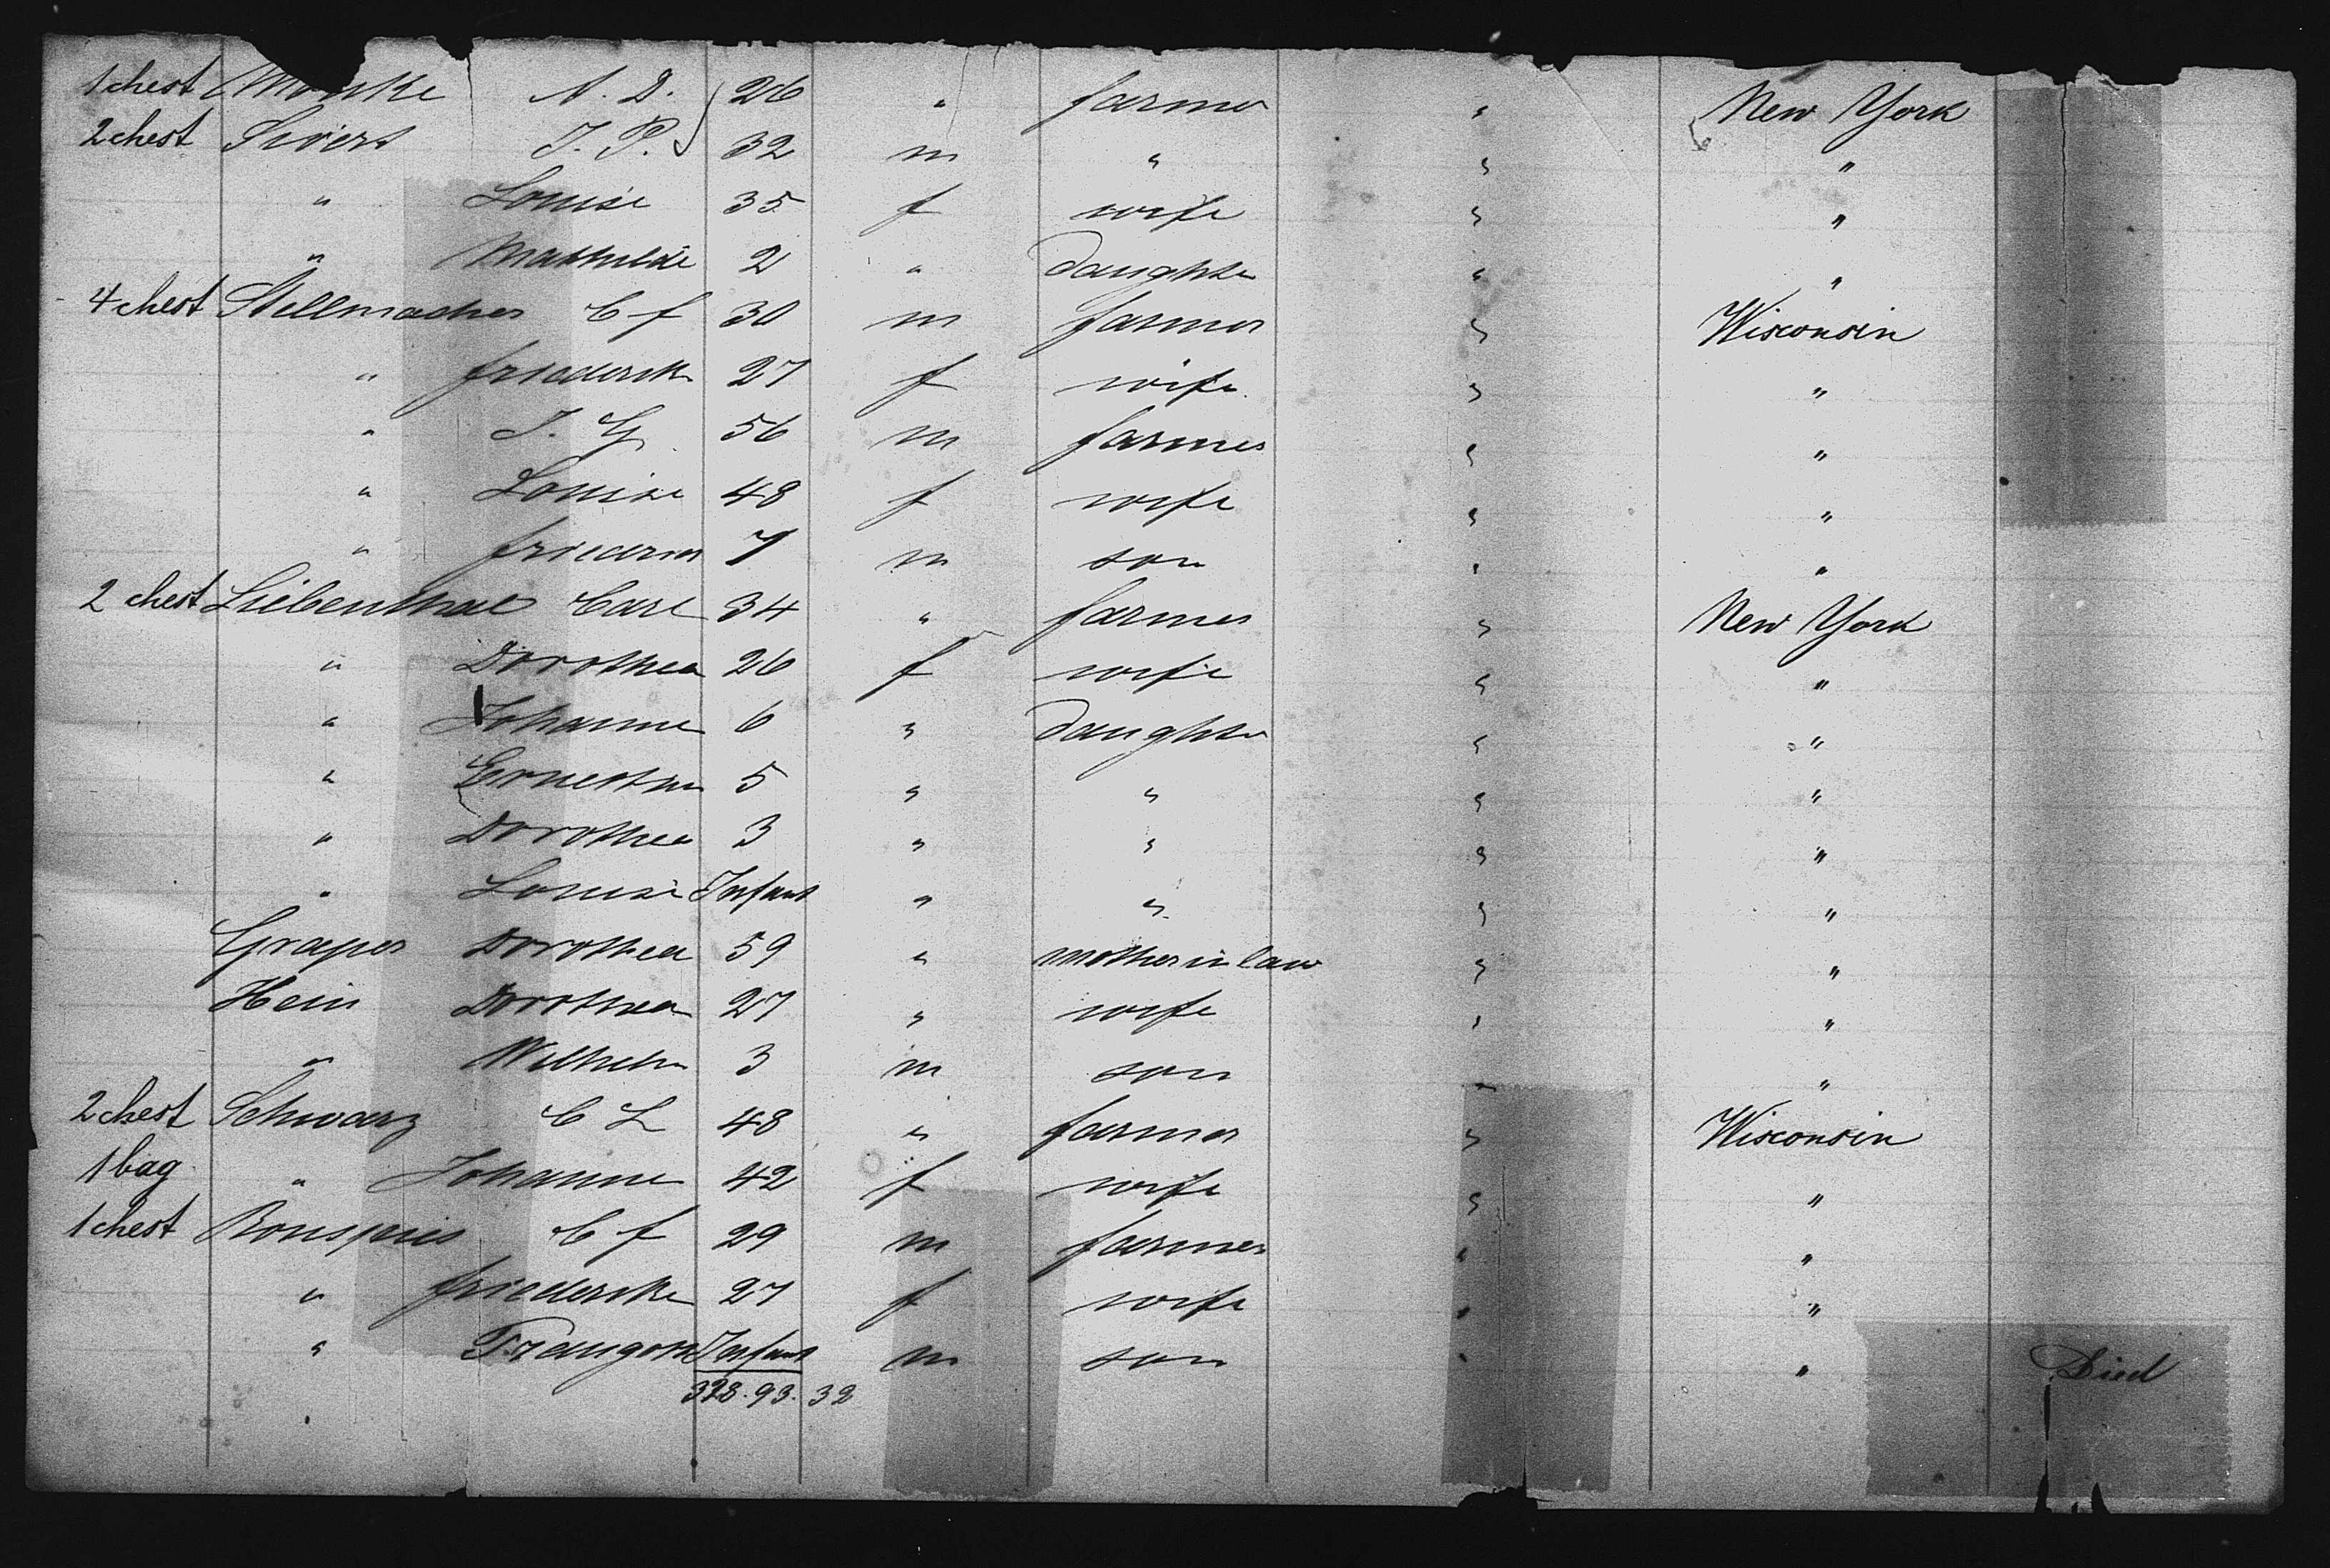 1 chest A. D. 26 " farmer " New York
2 chest Sivert J. P. 32 m " " "
" Louise 35 f wife " "
" Mathilde 2 " daughter " "
4 chest Stellmacher C f 30 m farmer " Wisconsin
" friederik 27 f wife " "
" J. G. 56 m farmer " "
" Louise 48 f wife " "
" 7 m son " "
2 chest Liebenthal Carl 34 " farmer " New York
" Dorothea 26 f wife " "
" Johanne 6 " daughter " "
" Ernestin 5 " " " "
" Dorothea 3 " " " "
" Louise Infant " " " "
Graper Dorothea 59 " mother in law " "
Hein Dorothea 27 " wife " "
" Wilhelm 3 m son " "
2 chest Schwarz C L 48 " farmer " Wisconsin
1 bag " Johanne 42 f wife " "
1 chest C f 29 m farmer " "
" friederike 27 f wife " "
" Traugott Infant m son " " Died
328. 93. 32